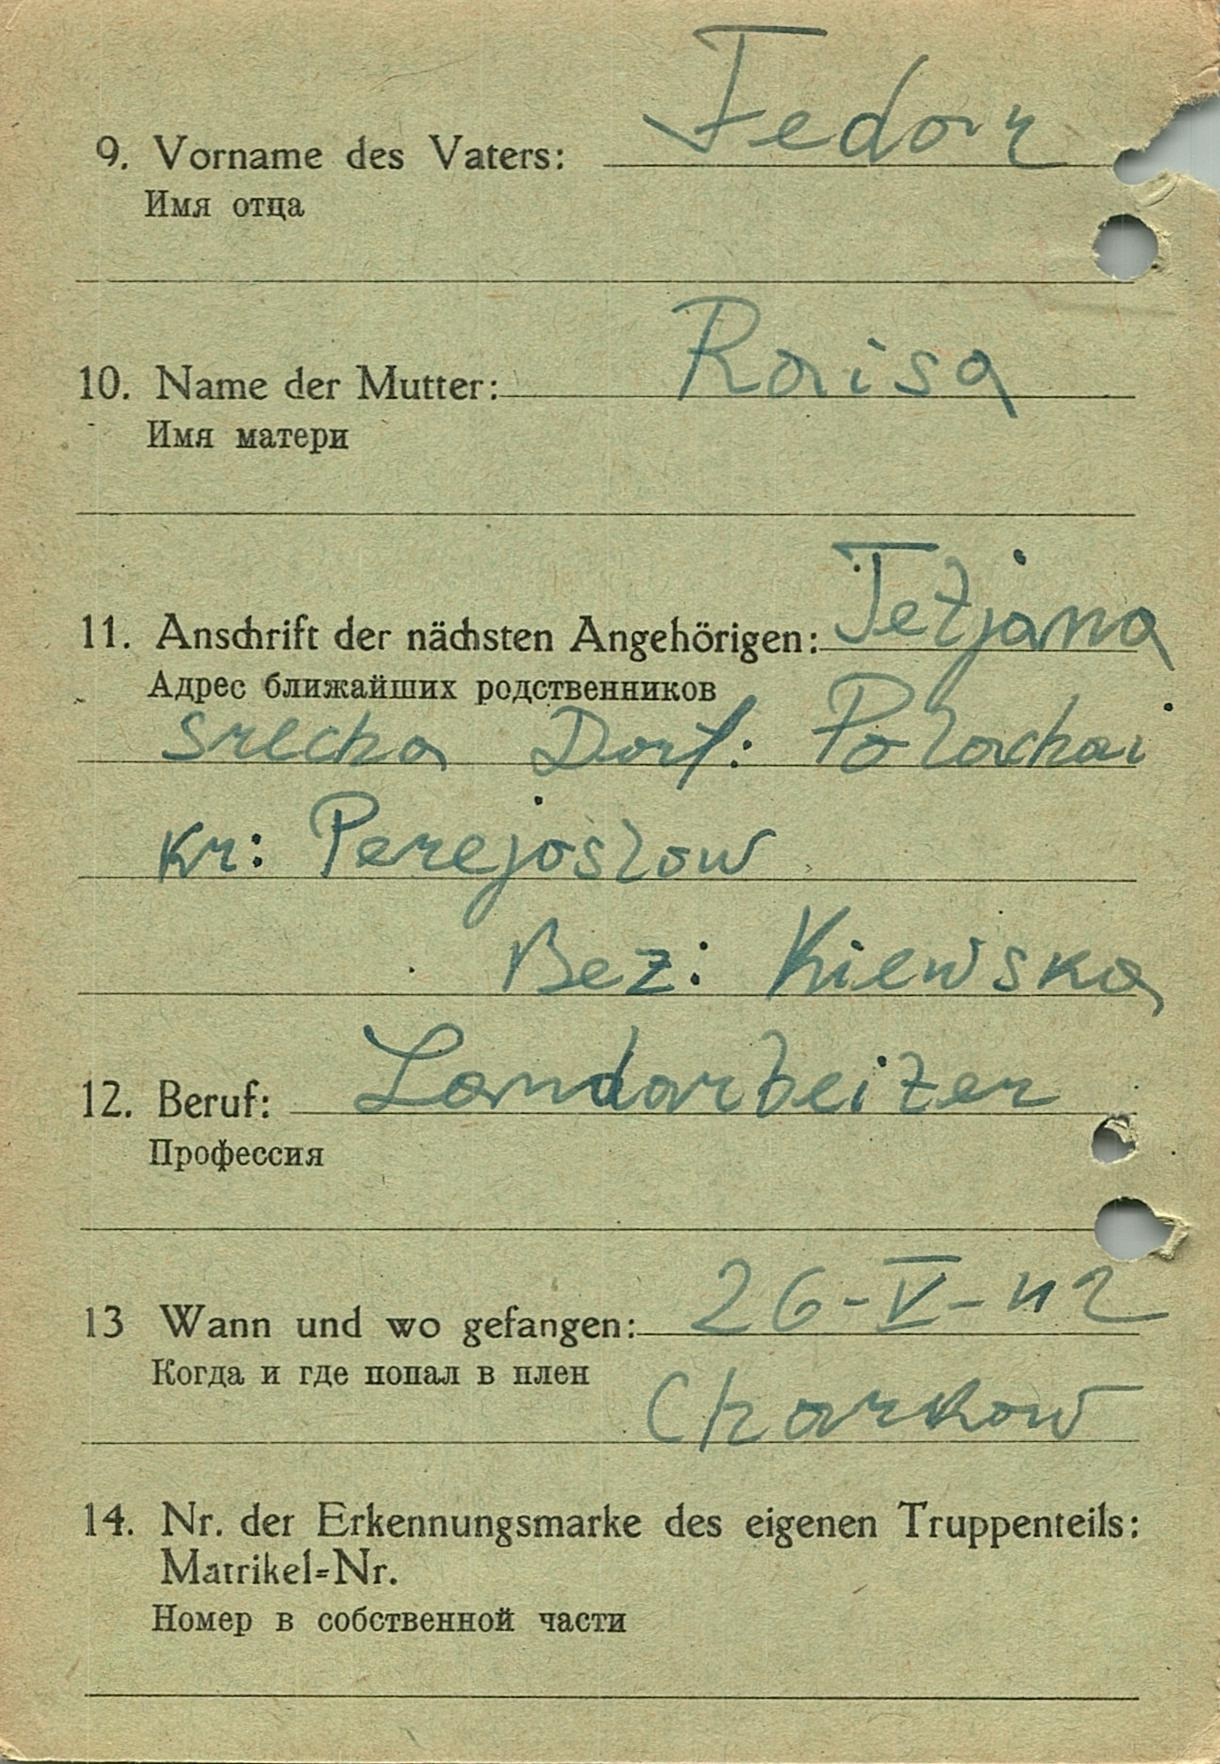 9. Vorname des Vaters: Fedor
Имя отца
10. Name der Mutter: Raisa
Имя матери
11. Anschrift der nächsten Angehörigen: Tetjana
Адрес ближайших родственников
Dorf:
kr: Perejoslow
Bez: Kiewska
12. Beruf: Landarbeiter
Профессия
13 Wann und wo gefangen: 26-V-42
Когда и где попал в плен
Charkow
14. Nr. der Erkennungsmarke des eigenen Truppenteils:
Matrikel-Nr.
Номер в собственной части